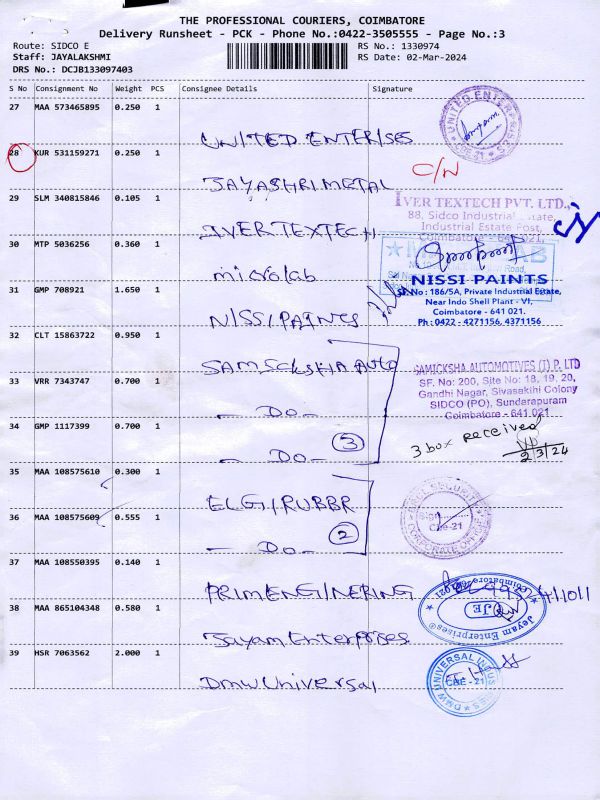 THE PROFESSIONAL COURIERS, COIMBATORE
Delivery Runsheet - PCK - Phone No.:0422-3505555 - Page No.:3
Route: SIDCO E
Staff: JAYALAKSHMI
DRS No.: DCJB133097403
RS No.: 1330974
RS Date: 02-Mar-2024
S No Consignment No Weight PCS Consignee Details Signature
27 MAA 573465895 0.250 1
UNITED ENTERISES
UNITED ENTERPRISES
CBE-21
28 KUR 531159271 0.250 1
JAYASHRI METAL
C/N
29 SLM 340815846 0.105 1
IVER TEXTECH
IVER TEXTECH PVT. LTD.,
88, Sidco Industrial Estate,
Industrial Estate Post,
Coimbatore - 641 021.
30 MTP 5036256 0.360 1
microlab
31 GMP 708921 1.650 1
NISSI PAINTS
NISSI PAINTS
S.F.No : 186/5A, Private Industrial Estate,
Near Indo Shell Plant - VI,
Coimbatore - 641 021.
Ph : 0422 - 4271156, 4371156
32 CLT 15863722 0.950 1
SAMSCKSHA AUTO
SAMICKSHA AUTOMOTIVES (I) P. LTD
SF. No: 200, Site No: 18, 19, 20,
Gandhi Nagar, Sivasakihi Colony
SIDCO (PO), Sundarapuram
Coimbatore - 641.021
33 VRR 7343747 0.700 1
- Do -
34 GMP 1117399 0.700 1
- Do -
3
3 box received
2/3/24
35 MAA 108575610 0.300 1
ELGI RUBBR
36 MAA 108575609 0.555 1
- Do -
2
CORPORATE OFFICE
CBE-21
37 MAA 108550395 0.140 1
PRIM ENGINERING
38 MAA 865104348 0.580 1
Jayam Enterprises
Jeyam Enterprises
JE
Coimbatore-641 021
39 HSR 7063562 2.000 1
DMW Universal
DMW UNIVERSAL INDUSTRIES
CBE - 21